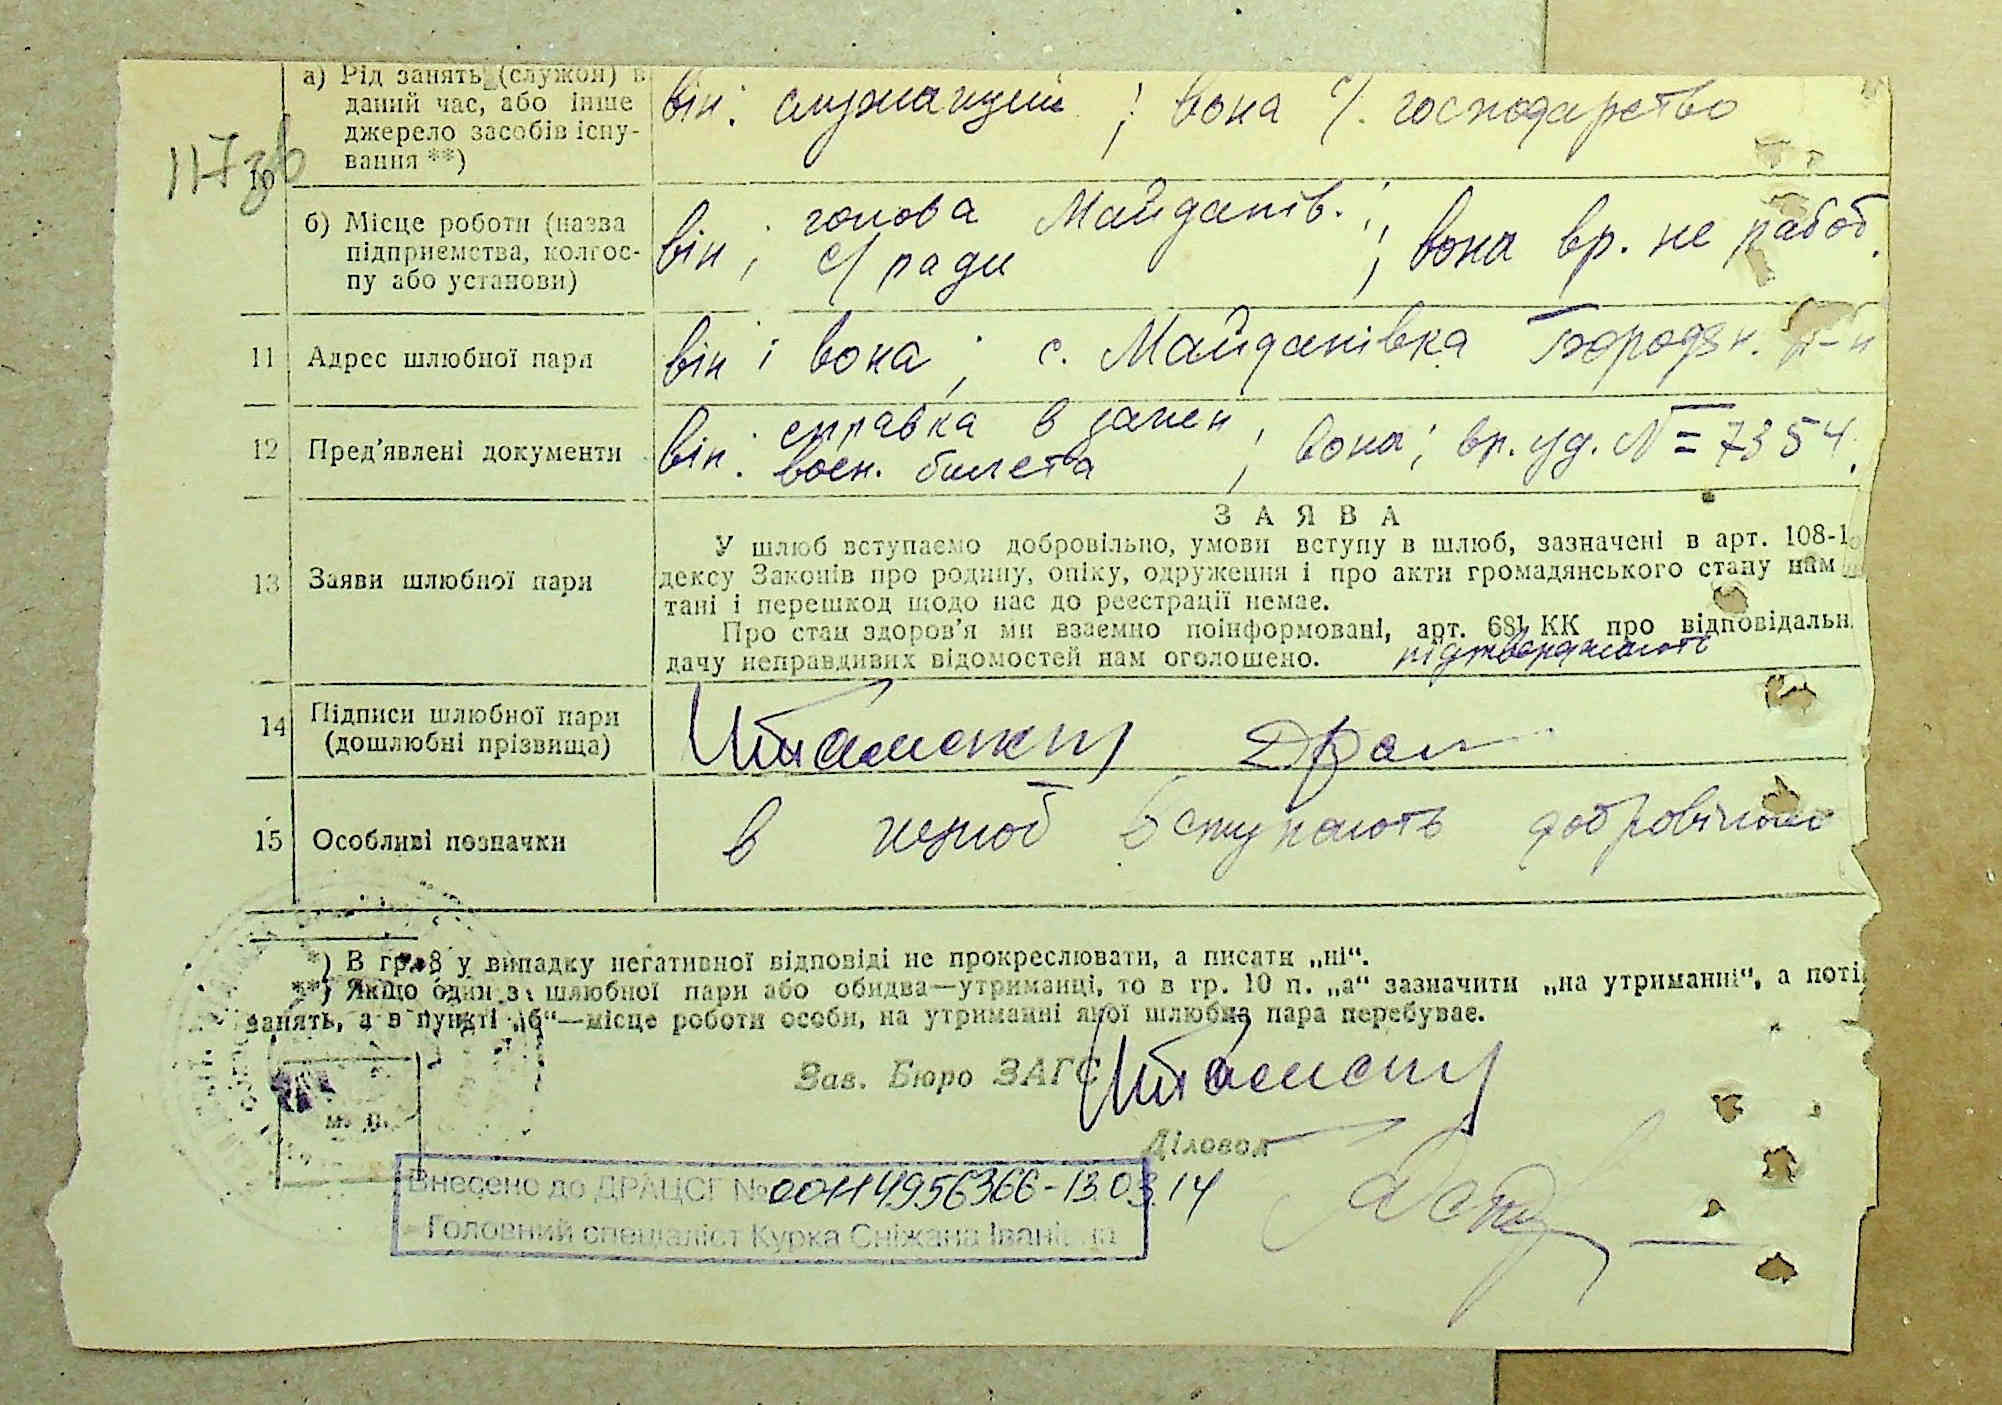 117зв
10
а) Рід занять (служби) в
даний час, або інше
джерело засобів існу-
вання **)
він: служащий ; вона с/. господарство
б) Місце роботи (назва
підприємства, колгос-
пу або установи)
він ; голова Майданів. ; вона вр. не работ.
с/ ради
11 Адрес шлюбної пари
він і вона ; с. Майданівка Бородян. р-н
12 Пред’явлені документи
він: справка в замен ; вона ; вр. уд. № 7354.
воен. билета
13 Заяви шлюбної пари
ЗАЯВА
У шлюб вступаємо добровільно, умови вступу в шлюб, зазначені в арт. 108-1
дексу Законів про родину, опіку, одруження і про акти громадянського стану нам
тані і перешкод щодо нас до реєстрації немає.
Про стан здоров’я ми взаємно поінформовані, арт. 681 КК про відповідальн
дачу неправдивих відомостей нам оголошено. підтверджають
14 Підписи шлюбної пари
(дошлюбні прізвища)
15 Особливі позначки
в шлюб вступають добровільно
*) В гр. 8 у випадку негативної відповіді не прокреслювати, а писати „ні“.
**) Якщо один з шлюбної пари або обидва—утриманці, то в гр. 10 п. „а“ зазначити „на утриманні“, а поті
занять, а в пункті „б“—місце роботи особи, на утриманні якої шлюбна пара перебуває.
Зав. Бюро ЗАГС
м. п.
Діловод
Внесено до ДРАЦСГ № 00114956366-13.03.14
Головний спеціаліст Курка Сніжана Іванівна